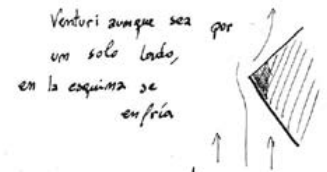 Venturi aunque sea por
un solo lado,
en la esquina se
enfría